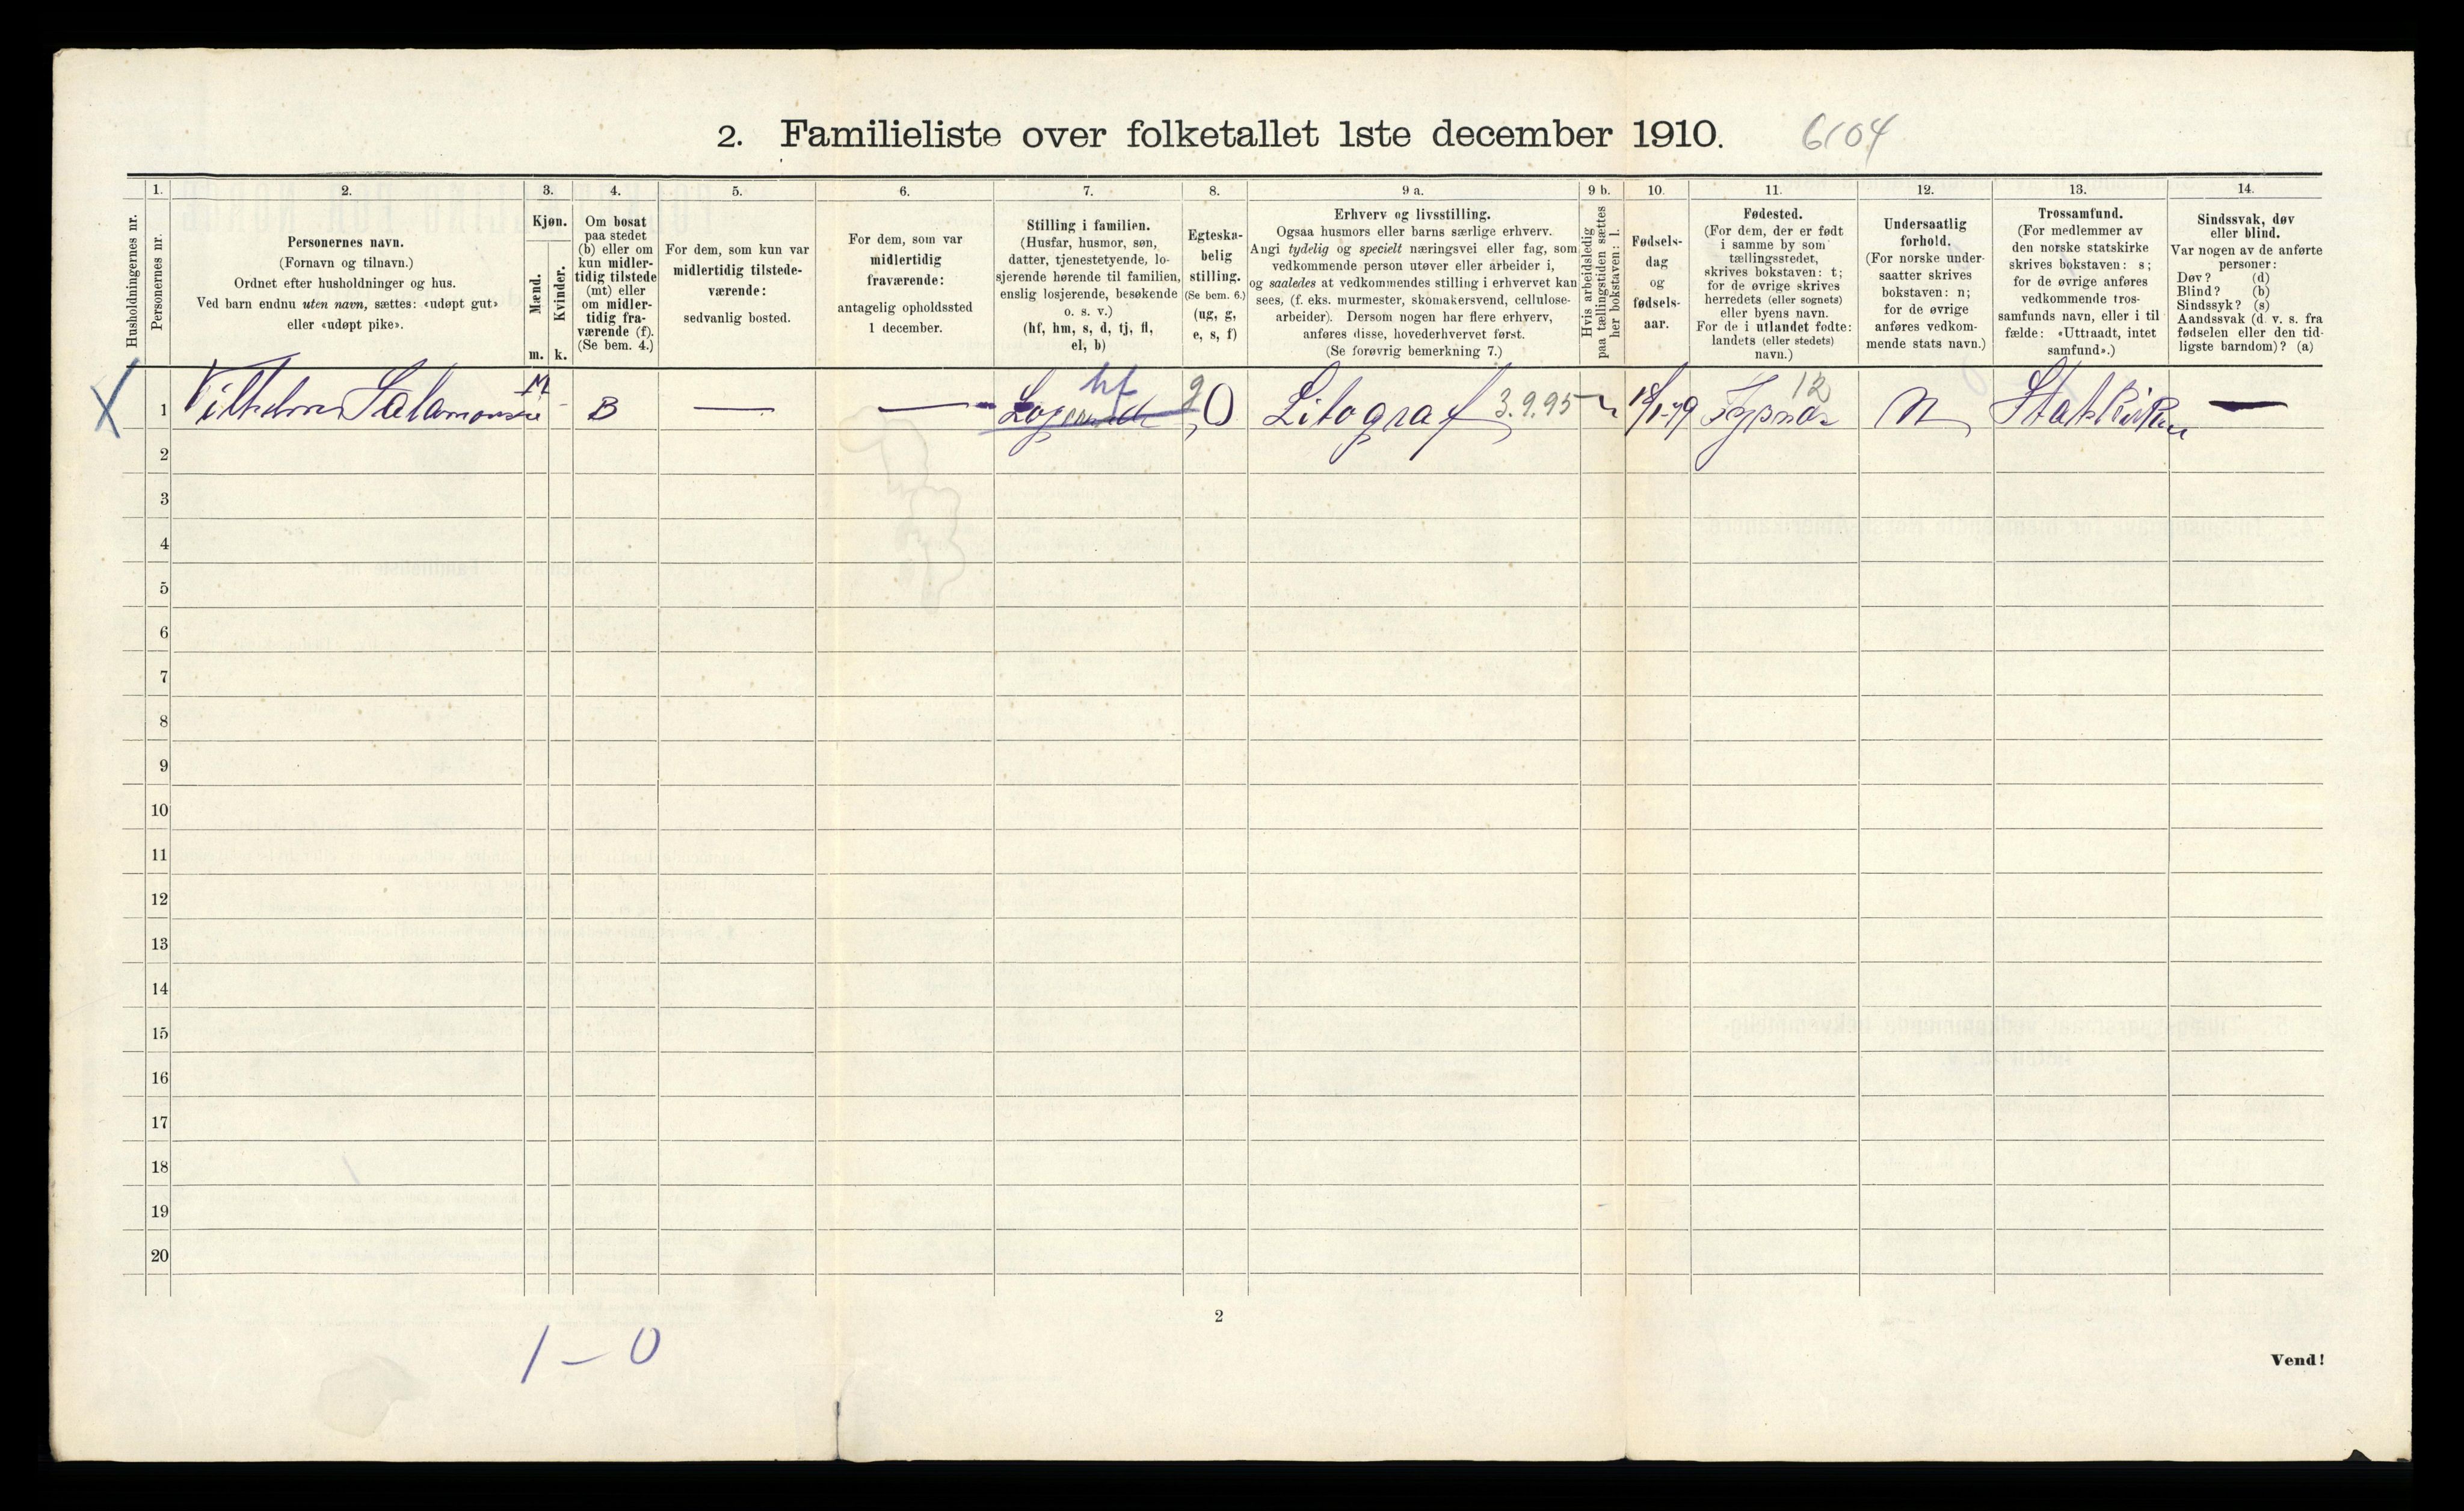 2. Familieliste over folketallet 1ste december 1910. 6104
Husholdningernes nr.
1.
Personernes nr.
2.
Personernes navn.
(Fornavn og tilnavn.)
Ordnet efter husholdninger og hus.
Ved barn endnu uten navn, sættes: «udøpt gut»
eller «udøpt pike».
3.
Kjøn.
Mænd.
m.
Kvinder.
k.
4.
Om bosat
paa stedet
(b) eller om
kun midler-
tidig tilstede
(mt) eller
om midler-
tidig fra-
værende (f).
(Se bem. 4.)
5.
For dem, som kun var
midlertidig tilstede-
værende:
sedvanlig bosted.
6.
For dem, som var
midlertidig
fraværende:
antagelig opholdssted
1 december.
7.
Stilling i familien.
(Husfar, husmor, søn,
datter, tjenestetyende, lo-
sjerende hørende til familien,
enslig losjerende, besøkende
o. s. v.)
(hf, hm, s, d, tj, fl,
el, b)
8.
Egteska-
belig
stilling.
(Se bem. 6.)
(ug, g,
e, s, f)
9 a.
Erhverv og livsstilling.
Ogsaa husmors eller barns særlige erhverv.
Angi tydelig og specielt næringsvei eller fag, som
vedkommende person utøver eller arbeider i,
og saaledes at vedkommendes stilling i erhvervet kan
sees, (f. eks. murmester, skomakersvend, cellulose-
arbeider). Dersom nogen har flere erhverv,
anføres disse, hovederhvervet først.
(Se forøvrig bemerkning 7.)
9 b.
Hvis arbeidsledig
paa tællingstiden sættes
her bokstaven: l.
10.
Fødsels-
dag
og
fødsels-
aar.
11.
Fødested.
(For dem, der er født
i samme by som
tællingsstedet,
skrives bokstaven: t;
for de øvrige skrives
herredets (eller sognets)
eller byens navn.
For de i utlandet fødte:
landets (eller stedets)
navn.)
12.
Undersaatlig
forhold.
(For norske under-
saatter skrives
bokstaven: n;
for de øvrige
anføres vedkom-
mende stats navn.)
13.
Trossamfund.
(For medlemmer av
den norske statskirke
skrives bokstaven: s;
for de øvrige anføres
vedkommende tros-
samfunds navn, eller i til
fælde: «Uttraadt, intet
samfund».)
14.
Sindssvak, døv
eller blind.
Var nogen av de anførte
personer:
Døv? (d)
Blind? (b)
Sindssyk? (s)
Aandssvak (d. v. s. fra
fødselen eller den tid-
ligste barndom)? (a)
X 1 Vilhelm M - B — — hf g Litograf 3.9.95 12 N Statskirken —
2
3
4
5
6
7
8
9
10
11
12
13
14
15
16
17
18
19
20
2
1 – 0
Vend!